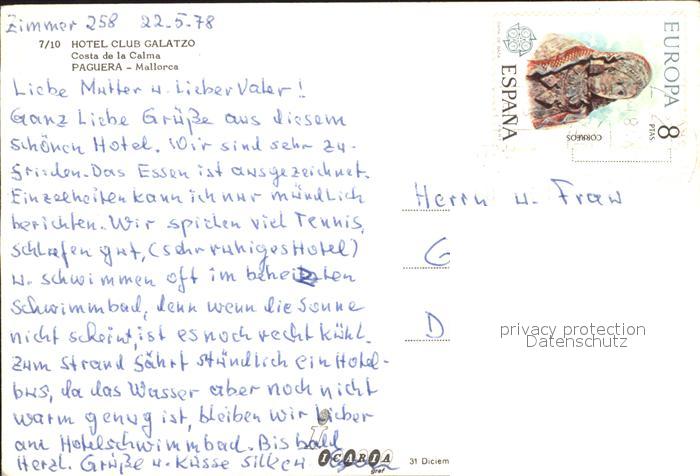 Zimmer 258 22.5.78
7/10 HOTEL CLUB GALATZO
Costa de la Calma
PAGUERA - Mallorca
Liebe Mutter u. Lieber Vater!
Ganz Liebe Grüße aus diesem
schönen Hotel. Wir sind sehr zu-
frieden. Das Essen ist ausgezeichnet.
Einzelheiten kann ich nur mündlich
berichten. Wir spielen viel Tennis,
schlafen gut, (sehr ruhiges Hotel)
u. schwimmen oft im beheizten
Schwimmbad, denn wenn die Sonne
nicht scheint, ist es noch recht kühl.
Zum Strand fährt stündlich ein Hotel-
bus, da das Wasser aber noch nicht
warm genug ist, bleiben wir lieber
am Hotelschwimmbad. Bis bald
Herzl. Grüße u. Küsse Silken
ICARIA
31 Diciem
ESPAÑA
EUROPA
8
PTAS
CORREOS
Herrn u. Frau
G
D
privacy protection
Datenschutz